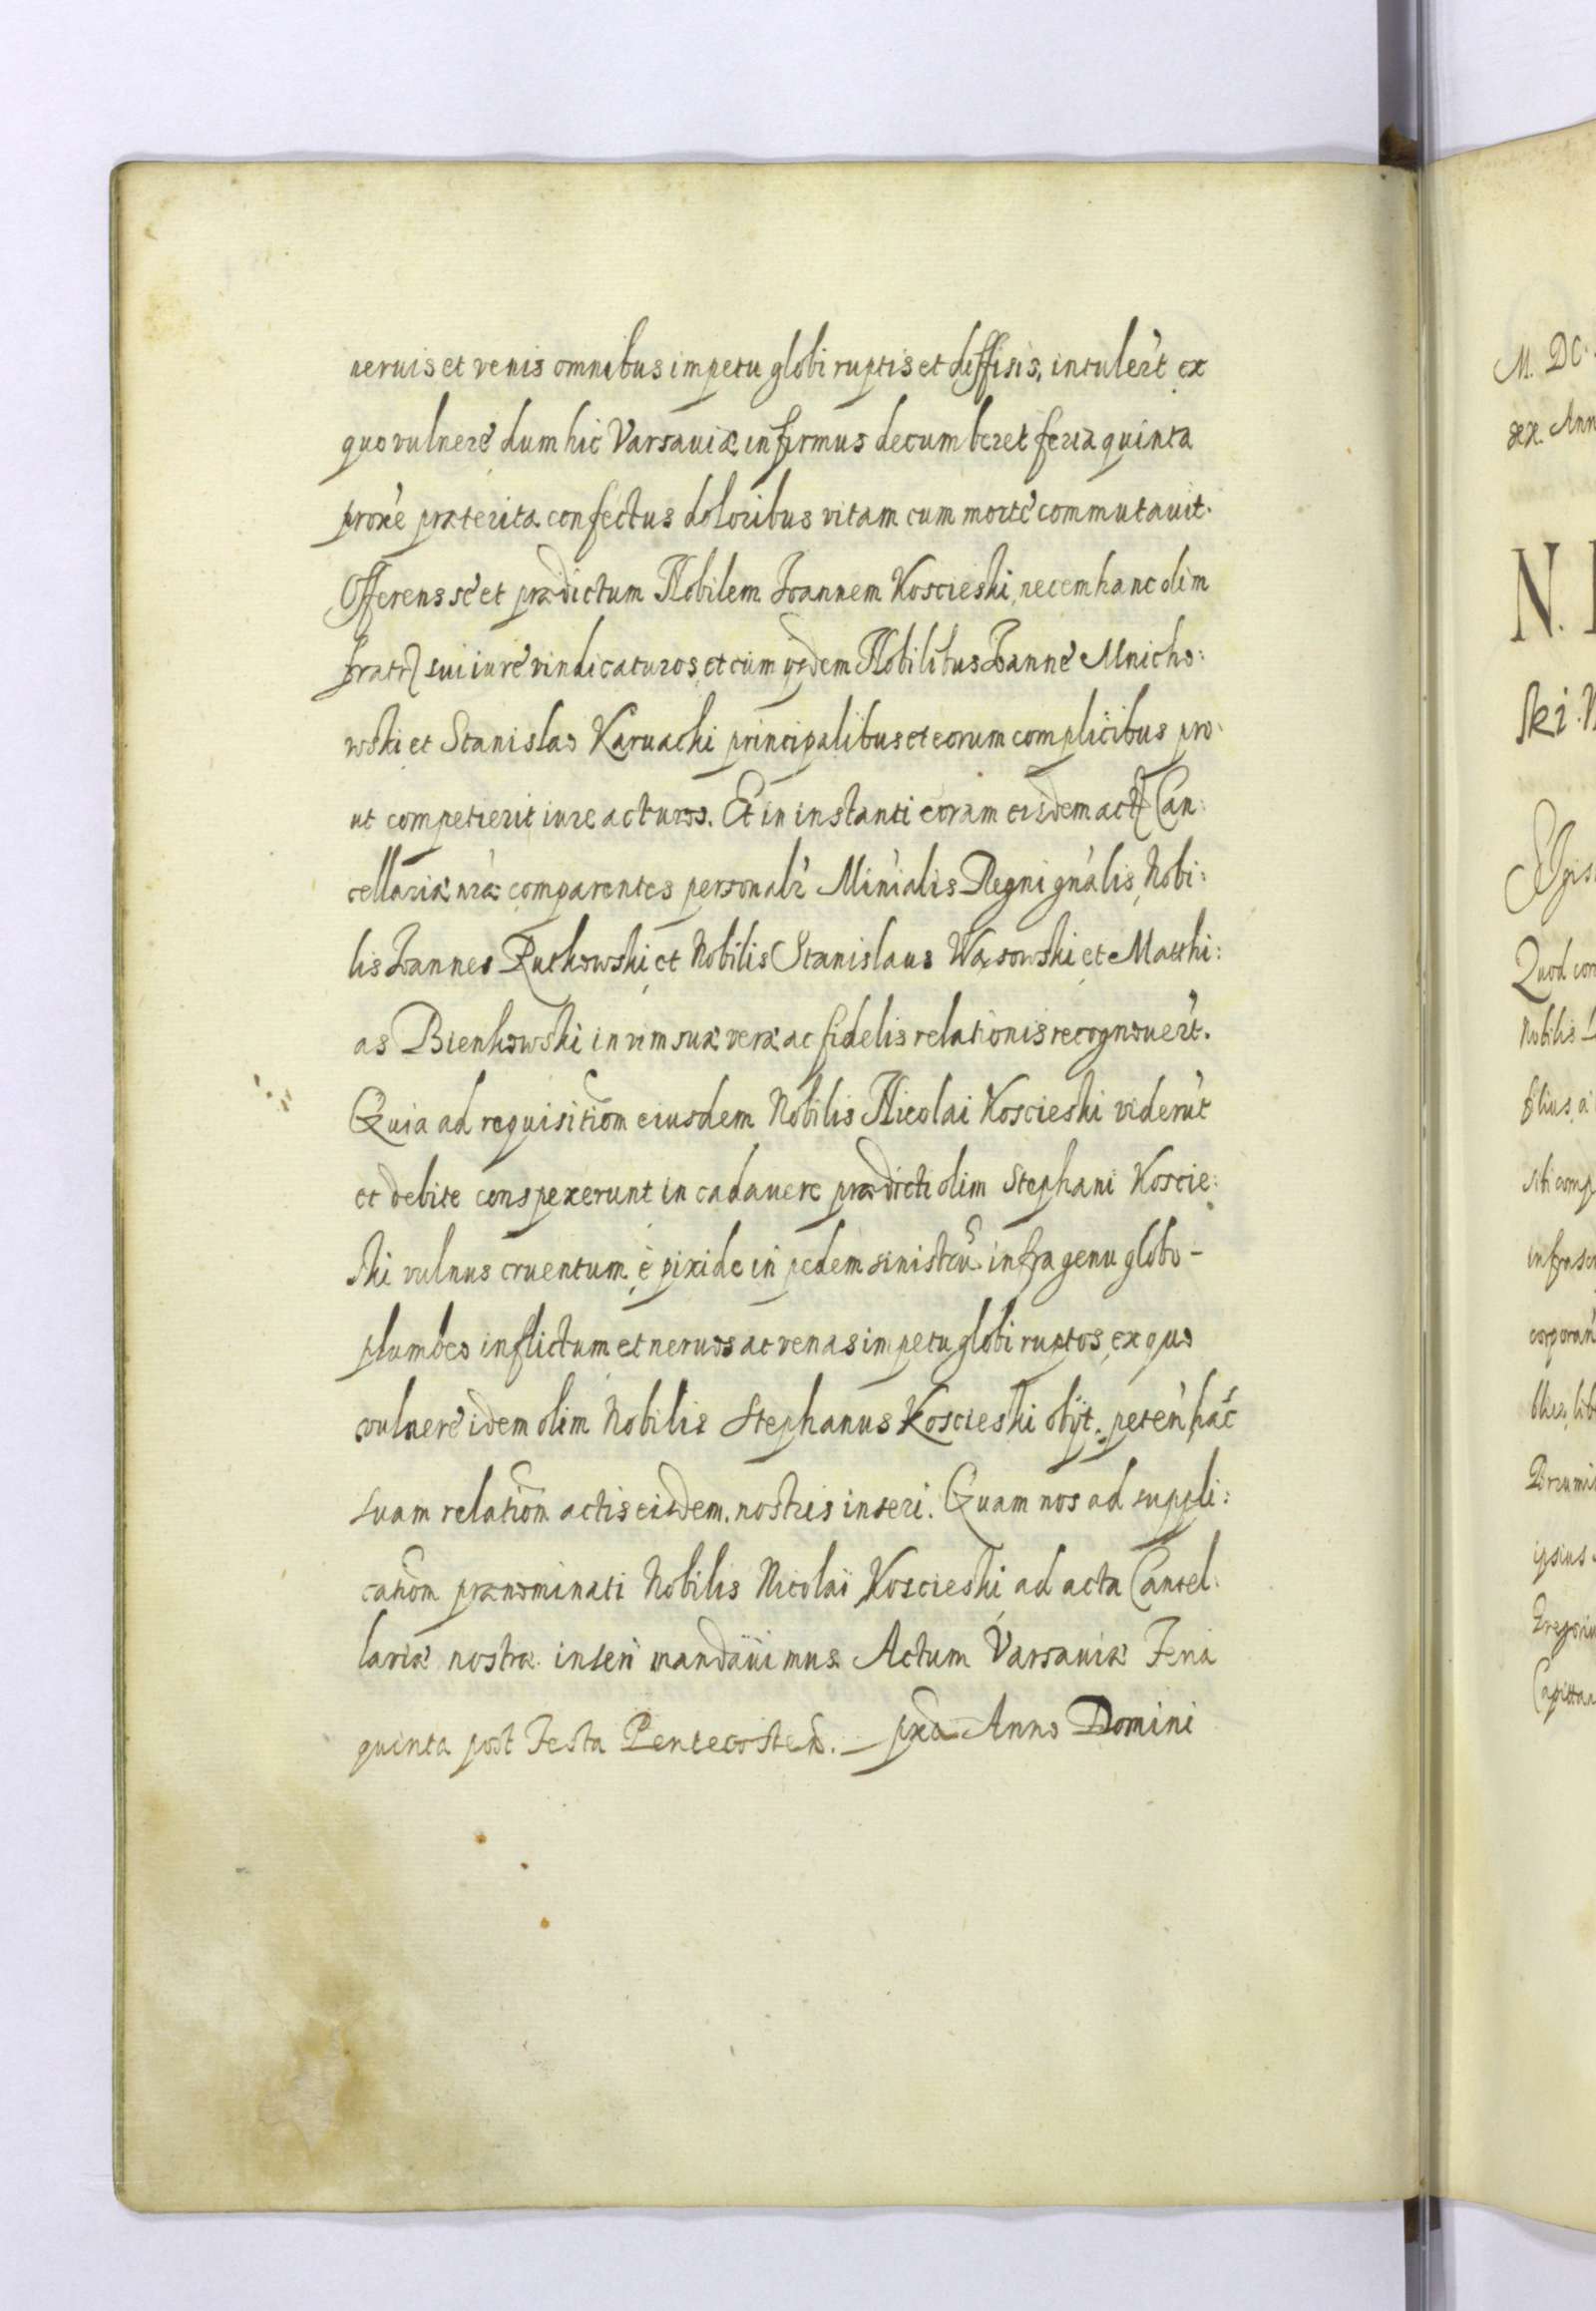 neruis et venis omnibus impetu globi ruptis et diffisis, intuler̃t ex
quo vulnere dum hic Varsauiæ infirmus decumberet feria quinta
prox̃e præterita confectus doloribus vitam cum morte commutauit.
Offerens se et prædictum Nobilem Ioannem Koscieski, necem hanc olim
fratr̃ sui iure vindicaturos, et cum ijsdem Nobilibus Ioanne Mnicho:
wski et Stanislao Karuacki principalibus et eorum complicibus pro
ut competierit iure acturos. Et in instanti coram eisdem act̃ Can:
cellariæ nr̃æ comparentes personalr̃ Minĩalis Regni gnãlis, Nobi:
lis Ioannes Rutkowski, et Nobilis Stanislaus Wąsowski et Matthi:
as Bienkowski in vim suæ veræ ac fidelis relationis recognouer̃t.
Quia ad requisitiõm eiusdem Nobilis Nicolai Koscieski viderũt
et debite conspexerunt in cadauere prædicti olim Stephani Koscie:
ski vulnus cruentum è pixide in pedem sinistrũ infra genu globo -
plumbeo inflictum et neruos ac venas impetu globi ruptos, ex quo
vulnere idem olim Nobilis Stephanus Koscieski obijt. peteñ hãc
suam relatiõm actis eisdem nostris inseri. Quam nos ad suppli:
catiõm prænominati Nobilis Nicolai Koscieski, ad acta Cancel:
lariæ nostræ inseri mandauimus Actum Varsauiæ Feria
quinta post Festa Pentecostes. _ pxa Anno Domini
M. DC.
sex. Ann
N.
ski. N
Quod con
Nobilis
filius a
sibi comp
infrascr
corporañ
ipsius
Gregoriu
Capittan